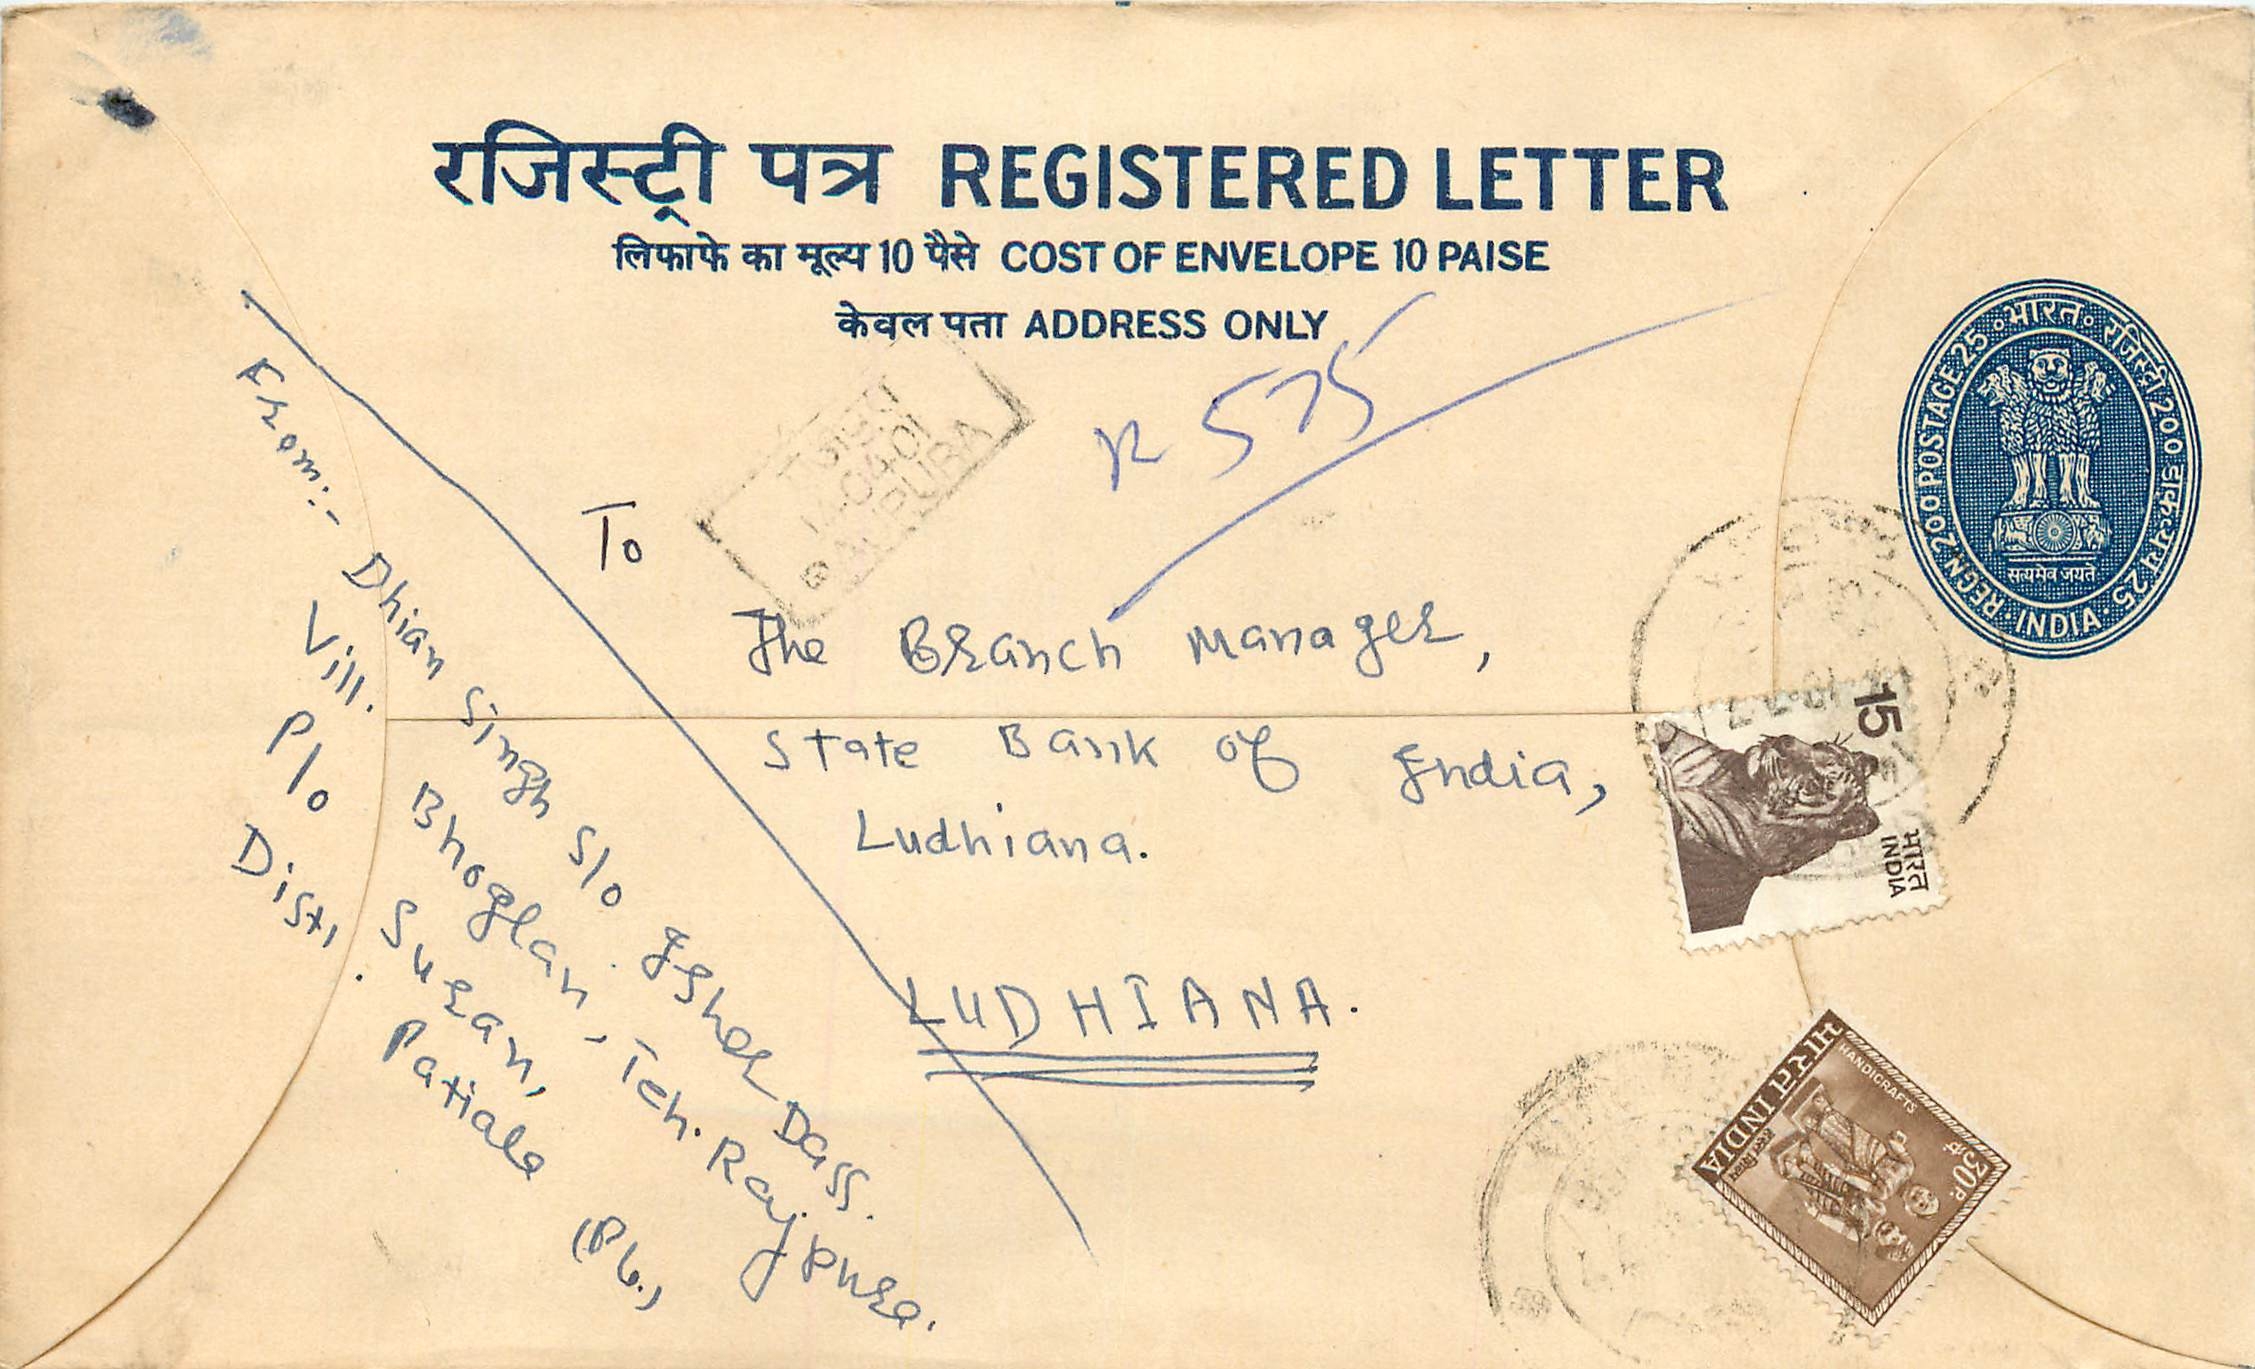 रजिस्ट्री पत्र REGISTERED LETTER
लिफाफे का मूल्य 10 पैसे COST OF ENVELOPE 10 PAISE
केवल पता ADDRESS ONLY
R 575
REGN 200 POSTAGE 25 भारत रजिस्ट्री 200 डाक व्यय 25 INDIA
सत्यमेव जयते
To
The Branch Manager,
State Bank of India,
Ludhiana.
LUDHIANA.
From:- Dhian Singh S/o Isher Dass.
Vill. Bhoglan, Teh. Rajpura.
P/o Suran,
Distt. Patiala (Pb.)
15
भारत
INDIA
भारत INDIA
HANDICRAFTS
30 P.
RAJPURA